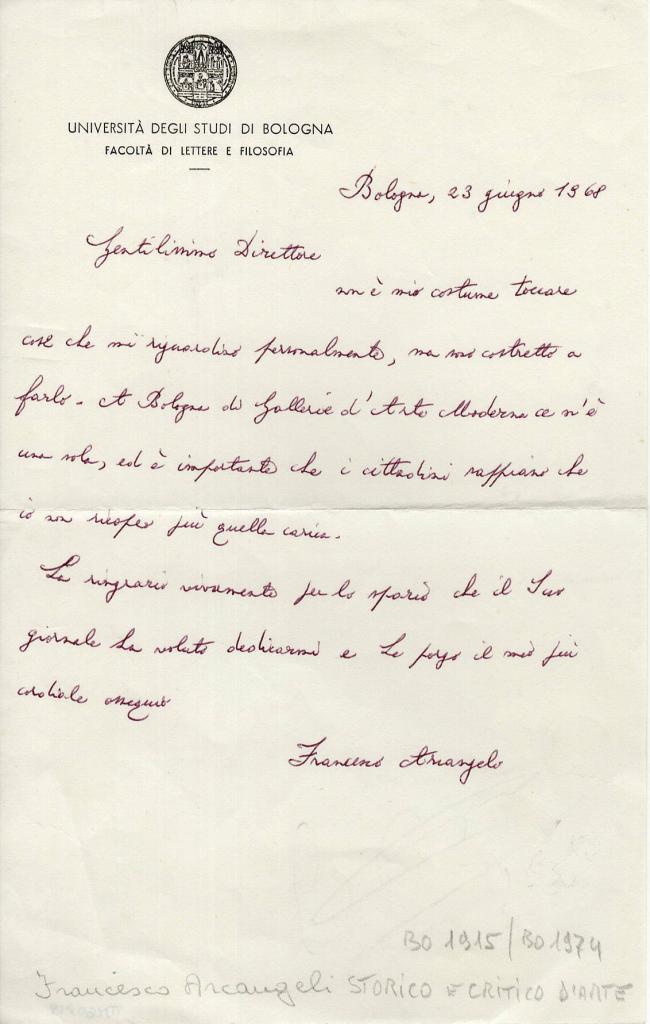 UNIVERSITÀ DEGLI STUDI DI BOLOGNA
FACOLTÀ DI LETTERE E FILOSOFIA
Bologna, 23 giugno 1968
Gentilissimo Direttore
non è mio costume toccare
cose che mi riguardino personalmente, ma sono costretto a
farlo. A Bologna di Gallerie d'Arte Moderna ce n'è
una sola, ed è importante che i cittadini sappiano che
io non ricopro più quella carica.
La ringrazio vivamente per lo spazio che il Suo
giornale ha voluto dedicarmi e Le porgo il mio più
cordiale ossequio
Francesco Arcangeli
BO 1915/BO 1974
Francesco Arcangeli STORICO E CRITICO D'ARTE